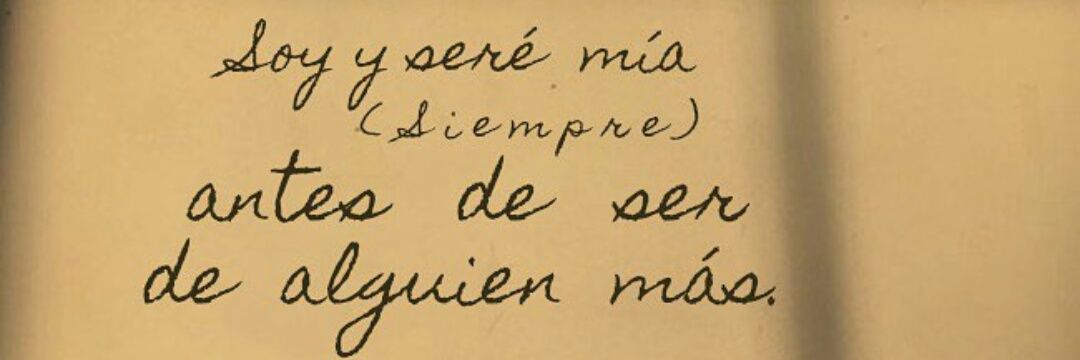 Soy y seré mía
(Siempre)
antes de ser
de alguien más.